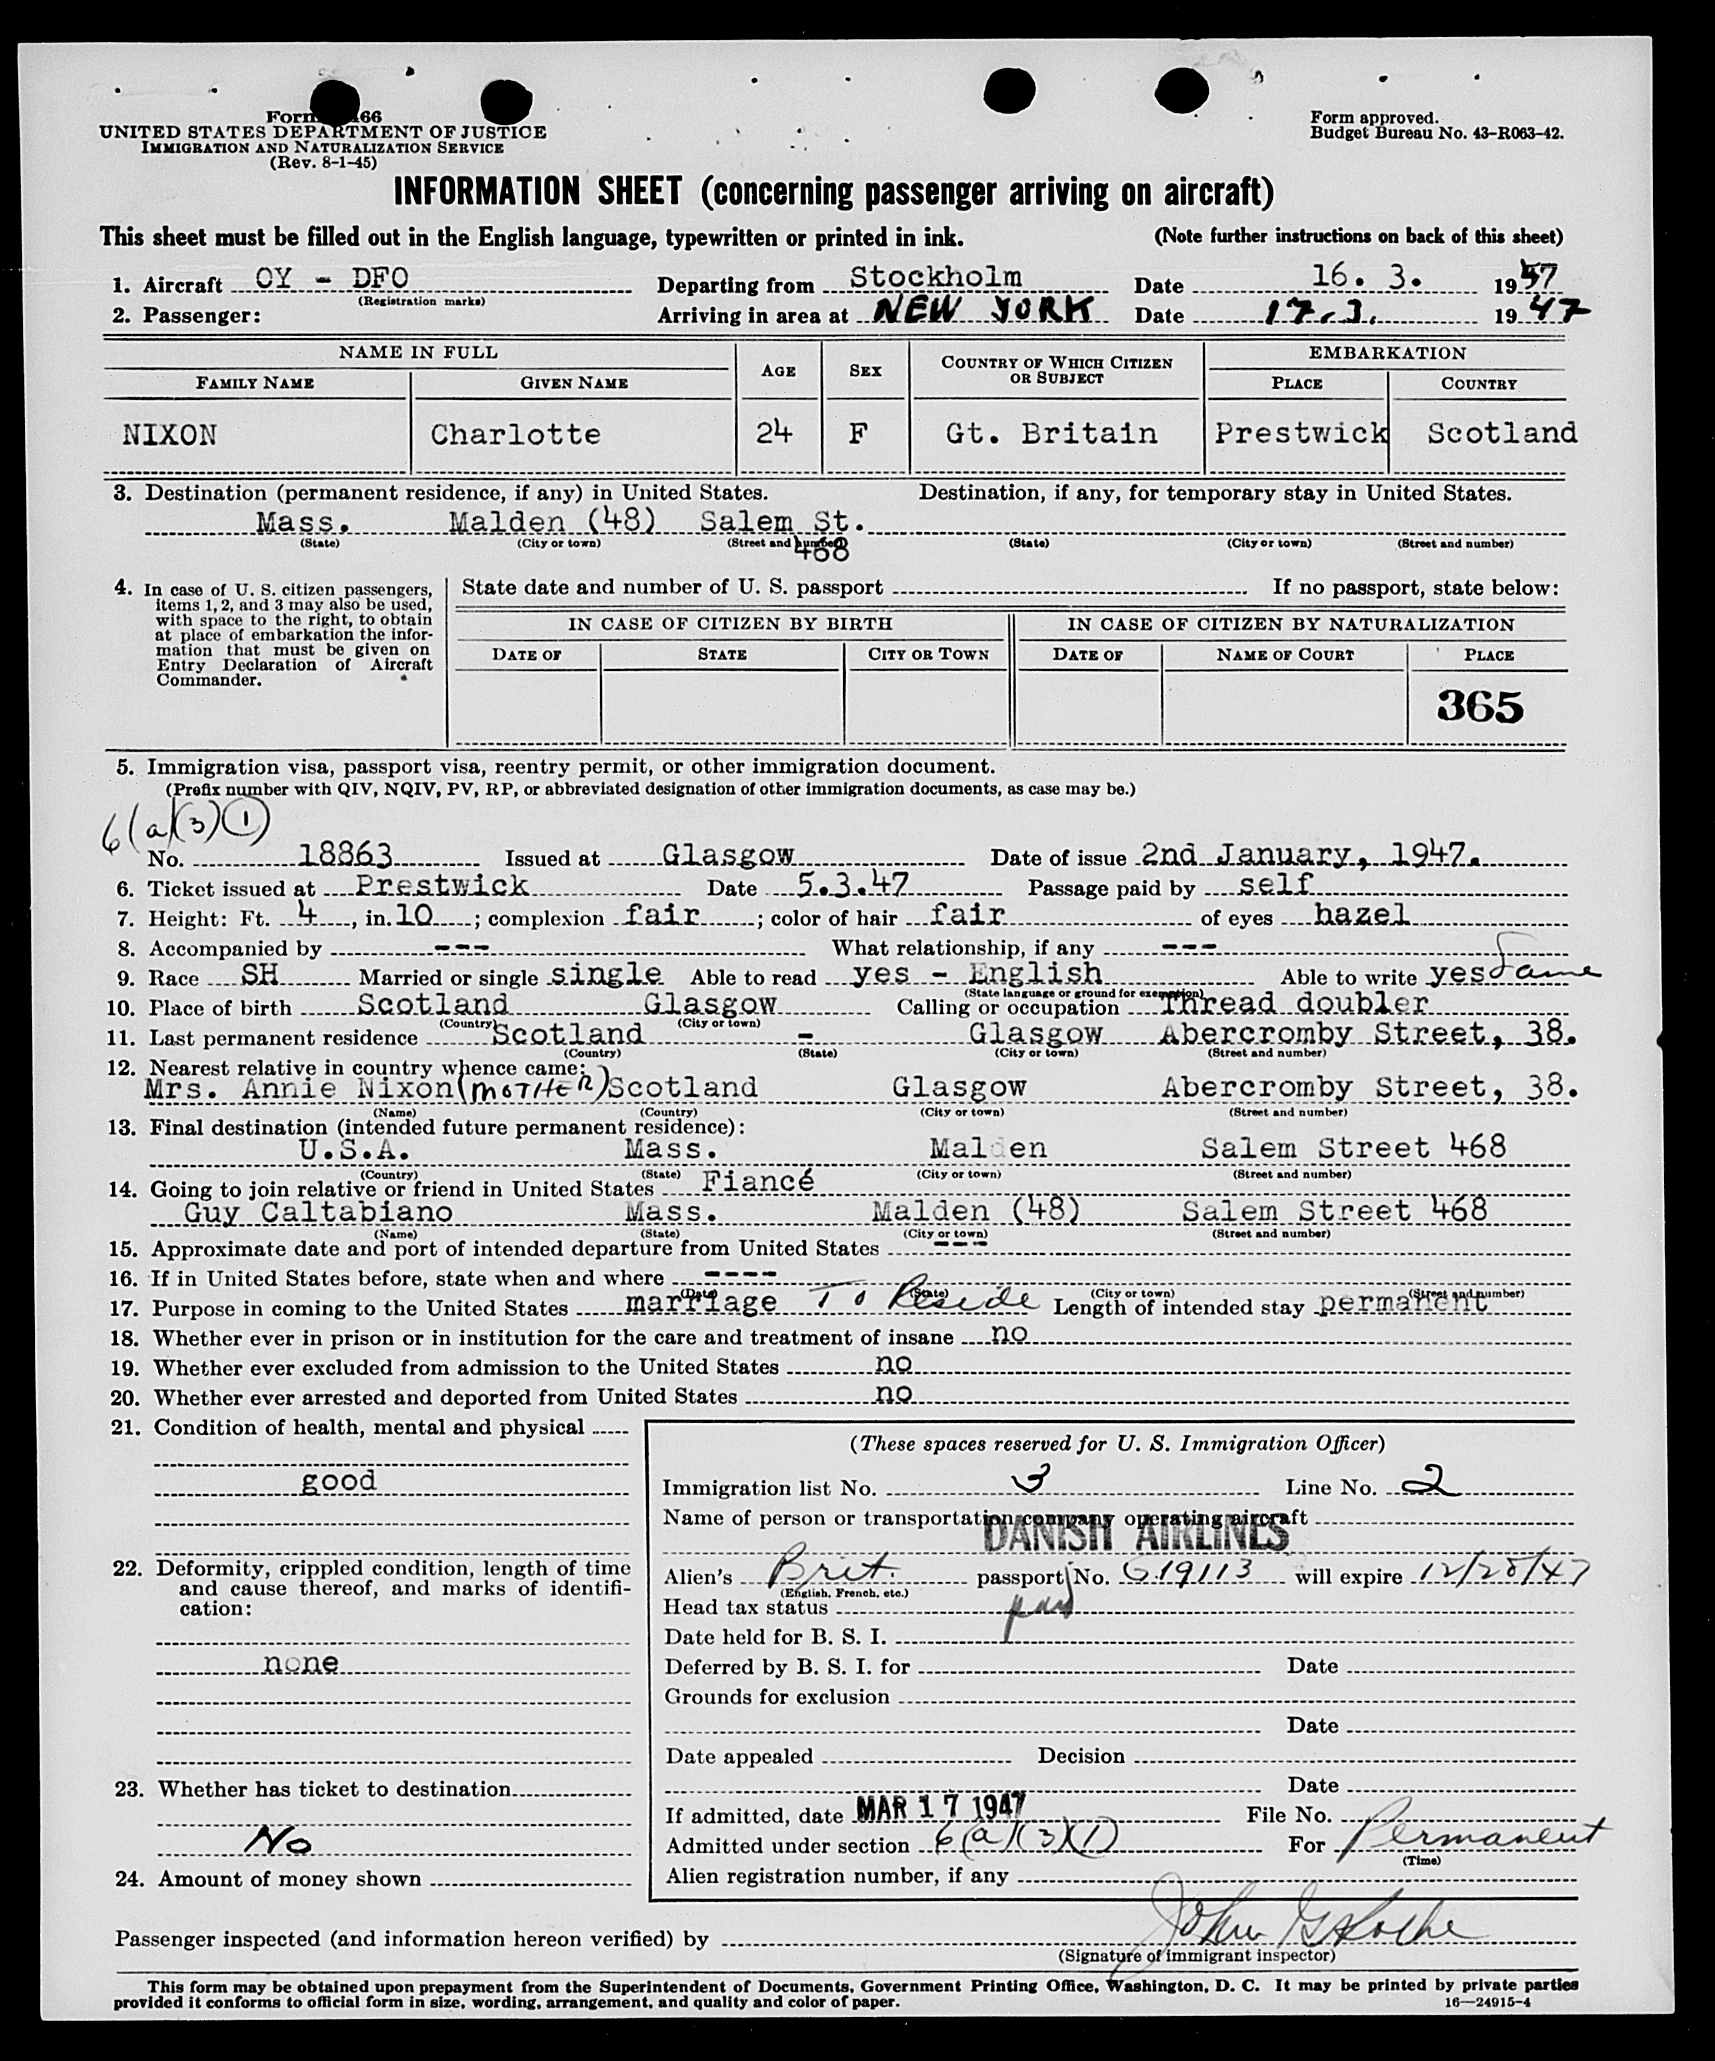 Form 66
UNITED STATES DEPARTMENT OF JUSTICE
IMMIGRATION AND NATURALIZATION SERVICE
(Rev. 8-1-45)
Form approved.
Budget Bureau No. 43-R063-42.
INFORMATION SHEET (concerning passenger arriving on aircraft)
This sheet must be filled out in the English language, typewritten or printed in ink. (Note further instructions on back of this sheet)
1. Aircraft OY - DFO Departing from Stockholm Date 16. 3. 1947
(Registration marks)
2. Passenger: Arriving in area at NEW YORK Date 17. 3. 1947
NAME IN FULL AGE SEX COUNTRY OF WHICH CITIZEN OR SUBJECT EMBARKATION
FAMILY NAME GIVEN NAME PLACE COUNTRY
NIXON Charlotte 24 F Gt. Britain Prestwick Scotland
3. Destination (permanent residence, if any) in United States. Destination, if any, for temporary stay in United States.
Mass. Malden (48) Salem St.
(State) (City or town) (Street and number) (State) (City or town) (Street and number)
468
4. In case of U. S. citizen passengers, items 1, 2, and 3 may also be used, with space to the right, to obtain at place of embarkation the information that must be given on Entry Declaration of Aircraft Commander.
State date and number of U. S. passport If no passport, state below:
IN CASE OF CITIZEN BY BIRTH IN CASE OF CITIZEN BY NATURALIZATION
DATE OF STATE CITY OR TOWN DATE OF NAME OF COURT PLACE
365
5. Immigration visa, passport visa, reentry permit, or other immigration document.
(Prefix number with QIV, NQIV, PV, RP, or abbreviated designation of other immigration documents, as case may be.)
6(a)(3)(1)
No. 18863 Issued at Glasgow Date of issue 2nd January, 1947.
6. Ticket issued at Prestwick Date 5.3.47 Passage paid by self
7. Height: Ft. 4, in. 10; complexion fair; color of hair fair of eyes hazel
8. Accompanied by --- What relationship, if any ---
9. Race SH Married or single single Able to read yes - English Able to write yes Same
(State language or ground for exemption)
10. Place of birth Scotland Glasgow Calling or occupation Thread doubler
(Country) (City or town)
11. Last permanent residence Scotland - Glasgow Abercromby Street, 38.
(Country) (State) (City or town) (Street and number)
12. Nearest relative in country whence came:
Mrs. Annie Nixon (MOTHER) Scotland Glasgow Abercromby Street, 38.
(Name) (Country) (City or town) (Street and number)
13. Final destination (intended future permanent residence):
U.S.A. Mass. Malden Salem Street 468
(Country) (State) (City or town) (Street and number)
14. Going to join relative or friend in United States Fiancé
Guy Caltabiano Mass. Malden (48) Salem Street 468
(Name) (State) (City or town) (Street and number)
15. Approximate date and port of intended departure from United States ---
16. If in United States before, state when and where ----
(Date) (State) (City or town) (Street and number)
17. Purpose in coming to the United States marriage To Reside Length of intended stay permanent
18. Whether ever in prison or in institution for the care and treatment of insane no
19. Whether ever excluded from admission to the United States no
20. Whether ever arrested and deported from United States no
21. Condition of health, mental and physical
good
22. Deformity, crippled condition, length of time and cause thereof, and marks of identification:
none
23. Whether has ticket to destination
No
24. Amount of money shown
(These spaces reserved for U. S. Immigration Officer)
Immigration list No. 3 Line No. 2
Name of person or transportation company operating aircraft
DANISH AIRLINES
Alien's Brit. passport No. G19113 will expire 12/28/47
(English, French, etc.)
Head tax status paid
Date held for B. S. I.
Deferred by B. S. I. for Date
Grounds for exclusion
Date
Date appealed Decision
Date
If admitted, date MAR 17 1947 File No.
Admitted under section 6(a)(3)(1) For Permanent
(Time)
Alien registration number, if any
Passenger inspected (and information hereon verified) by
(Signature of immigrant inspector)
This form may be obtained upon prepayment from the Superintendent of Documents, Government Printing Office, Washington, D. C. It may be printed by private parties
provided it conforms to official form in size, wording, arrangement, and quality and color of paper. 16—24915-4